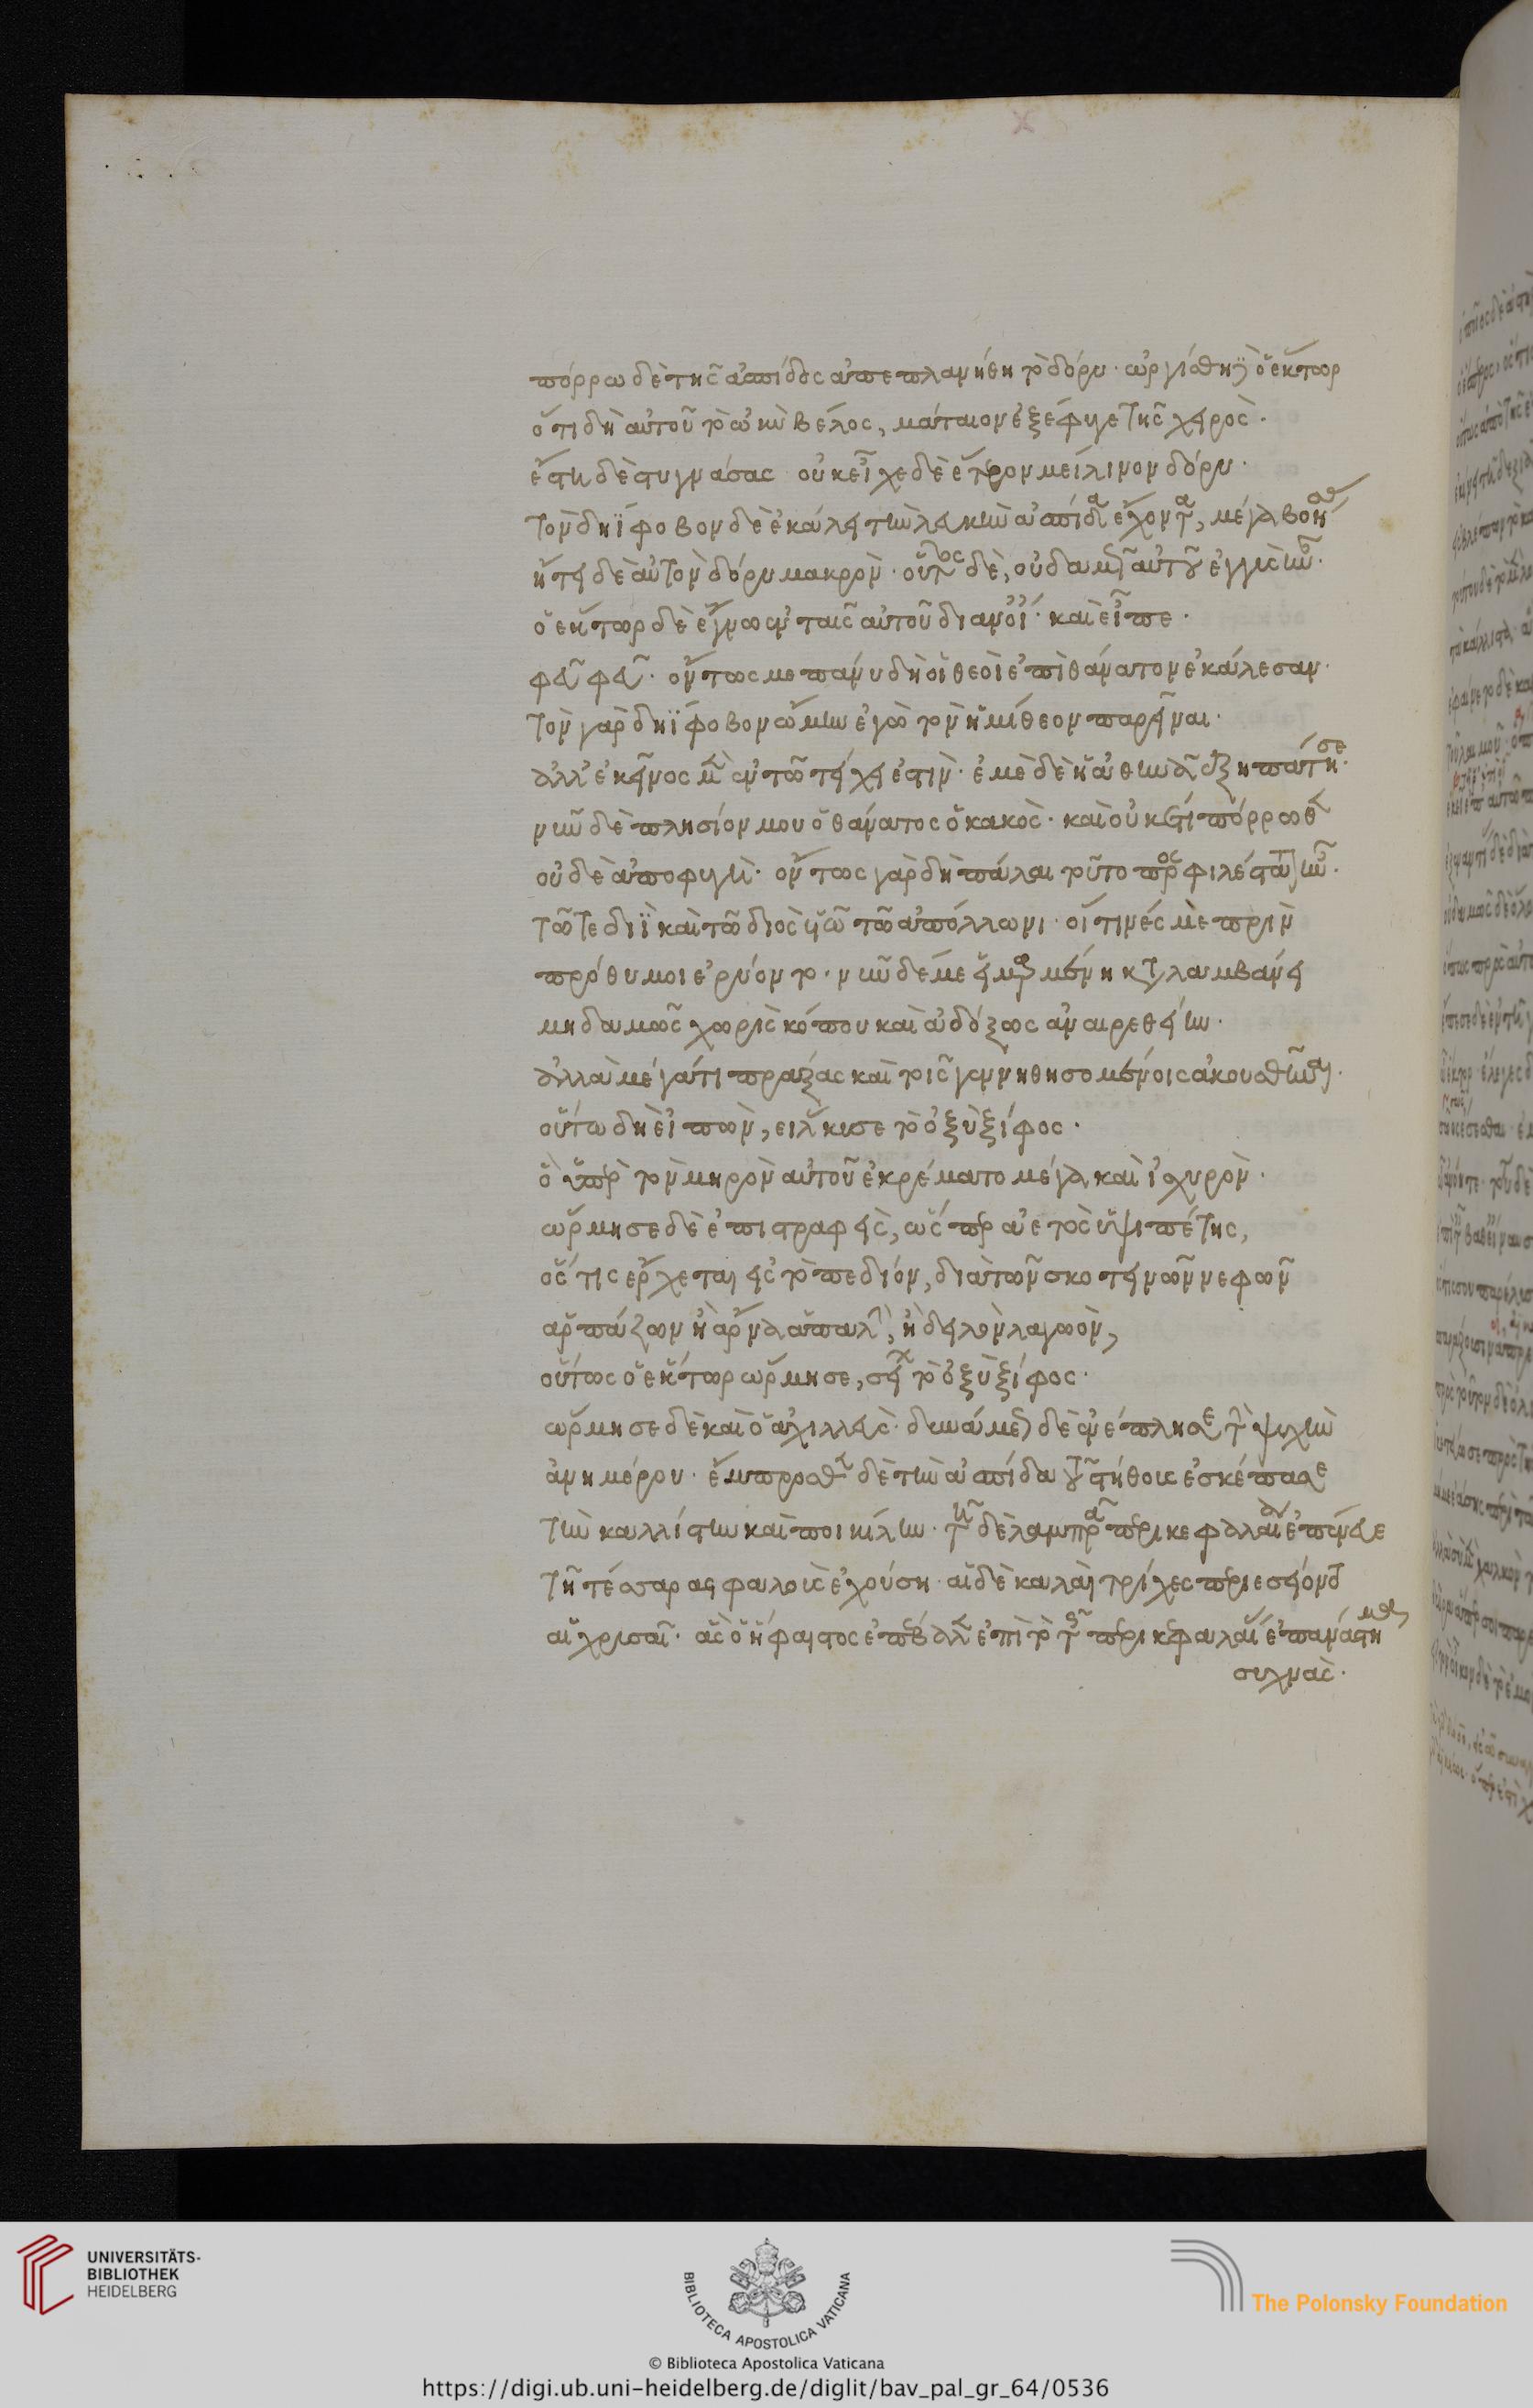 πόρρω δὲ τῆς ἀσπίδος ἀπεπλανήθη τὸ δόρυ· ὠργίσθη δὲ ὁ ἕκτωρ
ὅτι δὴ αὐτοῦ τὸ ὠκὺ βέλος, μάταιον ἐξέφυγε τῆς χειρός·
ἔστη δὲ στυγνάσας οὐκ εἶχε δὲ ἕτερον μείλινον δόρυ·
τὸν δηΐφοβον δὲ ἐκάλει τὴν λευκὴν ἀσπίδα ἔχοντα, μέγα βοήσας
ᾔτει δὲ αὐτὸν δόρυ μακρόν· οὗτος δὲ, οὐδαμῶς αὐτοῦ ἐγγὺς ἦν·
ὁ ἕκτωρ δὲ ἔγνω ἐν ταῖς αὐτοῦ διανοίαις· καὶ εἶπε·
φεῦ φεῦ· ὄντως με πάνυ δὴ οἱ θεοὶ ἐπὶ θάνατον ἐκάλεσαν·
τὸν γὰρ δηΐφοβον ᾤμην ἐγὼ τὸν ἡμίθεον παρεῖναι·
ἀλλ' ἐκεῖνος μὲν ἐν τῷ τείχει ἐστίν· ἐμὲ δὲ ἡ ἀθηνᾶ ἐξηπάτησε·
νῦν δὲ πλησίον μου ὁ θάνατος ὁ κακός· καὶ οὐκέτι πόρρωθεν
οὐδὲ ἀποφυγή· ὄντως γὰρ δὴ πάλαι τοῦτο προσφιλέστατον ἦν·
τῷ τε διῒ καὶ τῷ διὸς υἱῷ τῷ ἀπόλλωνι· οἵτινές με πρὶν
πρόθυμοι ἐρύοντο· νῦν δέ με εἱμαρμένη καταλαμβάνει
μηδαμῶς χωρὶς κόπου καὶ ἀδόξως ἀναιρεθείην·
ἀλλὰ μέγα τι πράξας καὶ τοῖς γεννηθησομένοις ἀκουσθῆναι·
οὕτω δὴ εἰπών, εἵλκυσε τὸ ὀξὺ ξίφος·
ὃ ὑπὲρ τὸν μηρὸν αὐτοῦ ἐκρέματο μέγα καὶ ἰσχυρόν·
ὥρμησε δὲ ἐπιστραφείς, ὥσπερ ἀετὸς ὑψιπέτης,
ὅστις ἔρχεται εἰς τὸ πεδίον, διὰ τῶν σκοτεινῶν νεφῶν
ἁρπάζων ἢ ἄρνα ἁπαλόν, ἢ δειλὸν λαγωόν,
οὕτως ὁ ἕκτωρ ὥρμησε, σείων τὸ ὀξὺ ξίφος·
ὥρμησε δὲ καὶ ὁ ἀχιλλεύς· δυνάμεως δὲ ἐνέπλησε τὴν ψυχὴν
ἀνημέρου· ἔμπροσθεν δὲ τὴν ἀσπίδα τοῦ στήθους ἐσκέπασε
τὴν καλλίστην καὶ ποικίλην· τῇ δὲ λαμπρᾷ περικεφαλαίᾳ ἐπένευε
τῇ τέσσαρας φάλους ἐχούσῃ· αἱ δὲ καλαὶ τρίχες περιεσείοντο
αἱ χρυσαῖ· ἃς ὁ ἥφαιστος ἐπέβαλεν ἐπὶ τὸ τῆς περικεφαλαίας ἐπανάστημα
συχνάς·
UNIVERSITÄTS-
BIBLIOTHEK
HEIDELBERG
BIBLIOTECA APOSTOLICA VATICANA
The Polonsky Foundation
© Biblioteca Apostolica Vaticana
https://digi.ub.uni-heidelberg.de/diglit/bav_pal_gr_64/0536